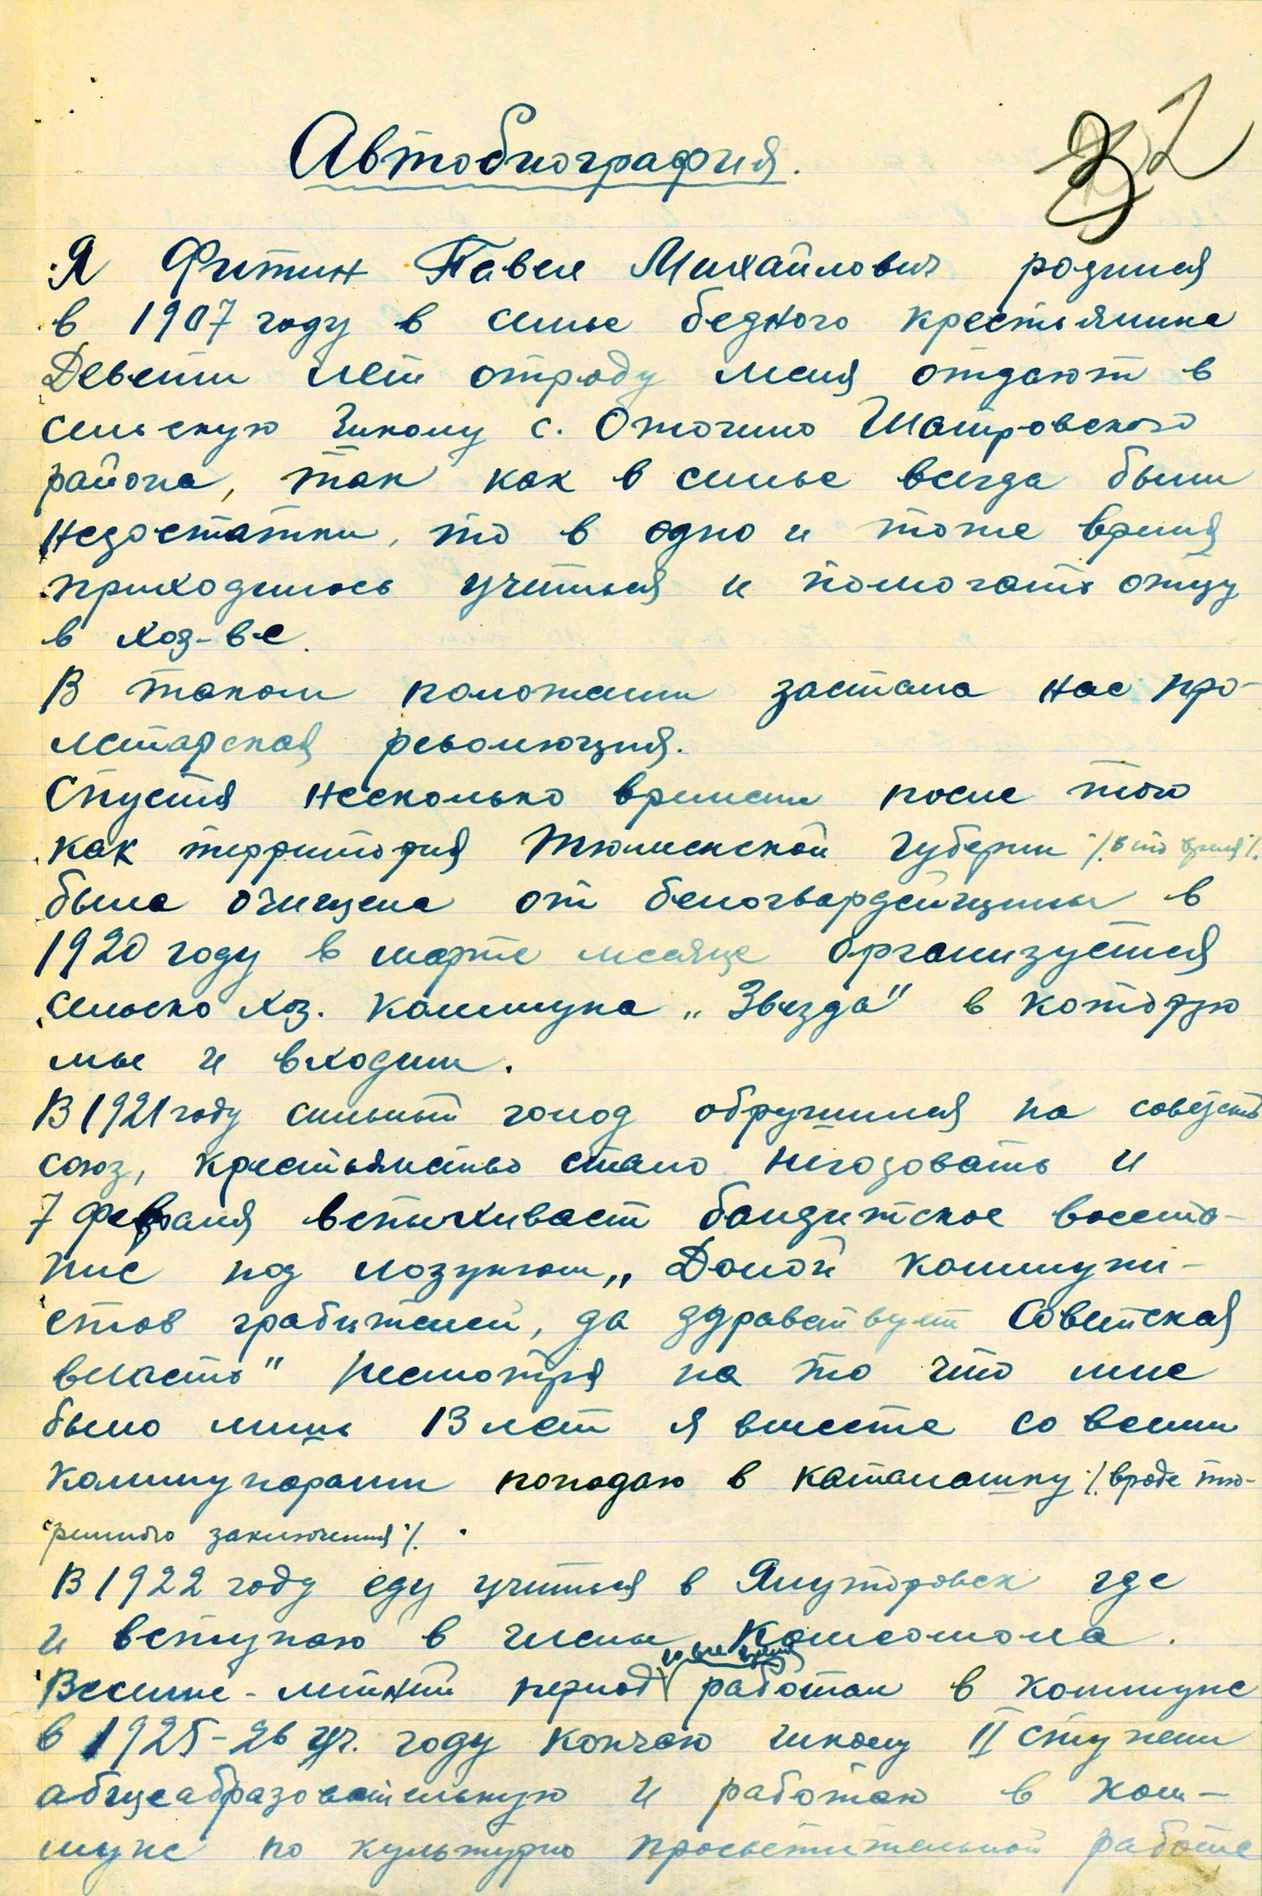 Автобиография.
32
Я Фитин Павел Михайлович родился
в 1907 году в семье бедного крестьянина
Девяти лет отроду меня отдают в
сельскую школу с. Ожогино Шатровского
района, так как в семье всегда были
недостатки, то в одно и тоже время
приходилось учиться и помогать отцу
в хоз-ве.
В таком положении застала нас про-
летарская революция.
Спустя несколько времени после того
как территория Тюменской губернии /. в то время /.
была очищена от белогвардейщины в
1920 году в марте месяце организуется
сельско хоз. коммуна „Звезда" в которую
мы и входим.
В 1921 году сильный голод обрушился на советск
союз, крестьянство стало негодовать и
7 февраля вспыхивает бандитское восста-
ние под лозунгом „Долой коммуни-
стов грабителей, да здравствует Советская
власть" Несмотря на то что мне
было лишь 13 лет я вместе со всеми
коммунарами попадаю в каталашку /. вроде тю-
ремного заключения /.
В 1922 году еду учиться в Ялуторовск где
и вступаю в члены Комсомола.
Весенне-летний период работал в коммуне
в 1925-26 уч. году кончаю школу II ступени
абщеабразовательную и работаю в ком-
муне по культурно просветительной работе